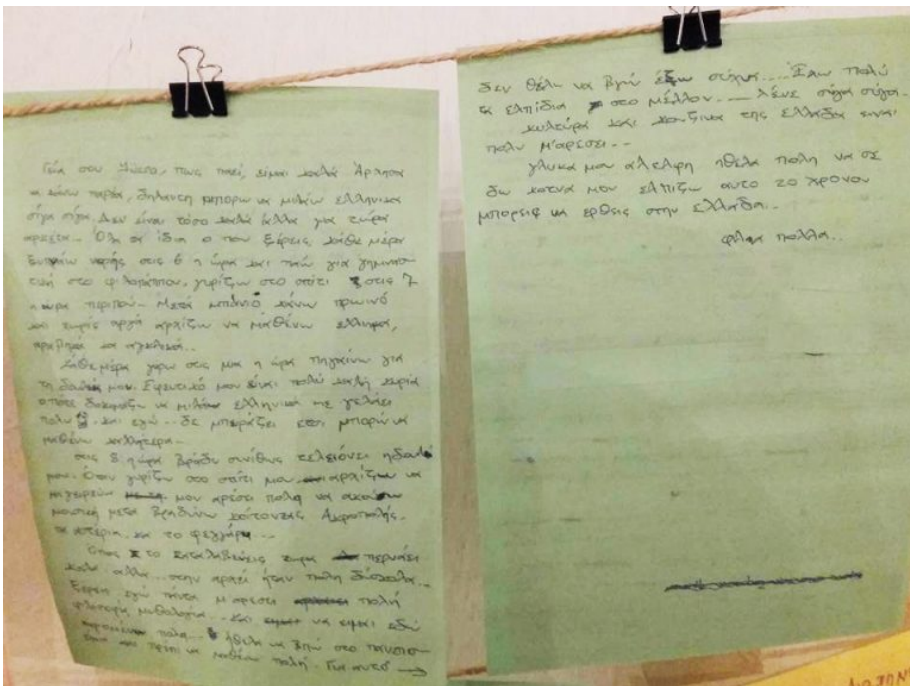 Γεία σου πως παεί, είμαι καλά Άρχησα
να κάνω παρέα, δηλαυτη μπορω να μιλάω ελληνικα
σίγα σίγα. Δεν είναι τόσο καλά άλλα για τώρα
αρκετα... Όλα τα ίδια ο που ξέρεις, κάθε μέρα
ξυπνάω νορής στις 6 η ώρα και πάω για γημνασ-
τική στο φιλοπάππου, γυρίζω στο σπίτι στις 7
η ώρα περιπού. Μετά μπάνιό κάνω πρωινό
και χωρίς αργά αρχίζω να μαθένω ελληνικα,
και αγγλικά..
Κάθε μέρα γυρω στις μια η ώρα πηγαίνω για
τη δουλιά μου. μου είναι πολύ καλή κυρία
οπότε δοκιμάζω να μιλάω ελληνικά με γελάει
πολυ και εγώ.. δε μπειράζει ετσι μπορώ να
μαθένω καλλήτερα.
στις 8 η ώρα βράδυ συνίθως τελειόνει η δουλιά
μου. Όταν γυρίζω στο σπίτι μου αρχίζω να
μαγειρεύω μου αρέσει πολη να ακούσω
μουσική μετα βραδύνω κοίτοντας Ακροπολής.
τα αστέρια και το φεγγάρη...
Όπως το καταλαβαίνεις τωρα περνάει
καλα αλλα... στην αρχεί ήταν πολη δύσκολα...
Ξέρεις εγώ πάντα μ αρεσει πολή
μυθολογία... Και να ειμαι εδώ
πολη... ήθελα να βπώ στο πανεπισ-
τήμιο και πρέπι να μαθένω πολή. Για αυτό →
δεν θέλω να βγώ έξω συχνα.... Έχω πολύ
τα ελπίδια στο μέλλον.... Λένε σίγα σίγα.
κυλτύρα και κουζινα της Ελλάδα ειναι
πολυ μ'αρεσει..
γλυκα μου αδελφη ηθελα πολη να σε
δω κοτνά μου ελπίζω αυτο το χρονου
μπορεις να ερθεις στην Ελλάδα..
φιλια πολλα..